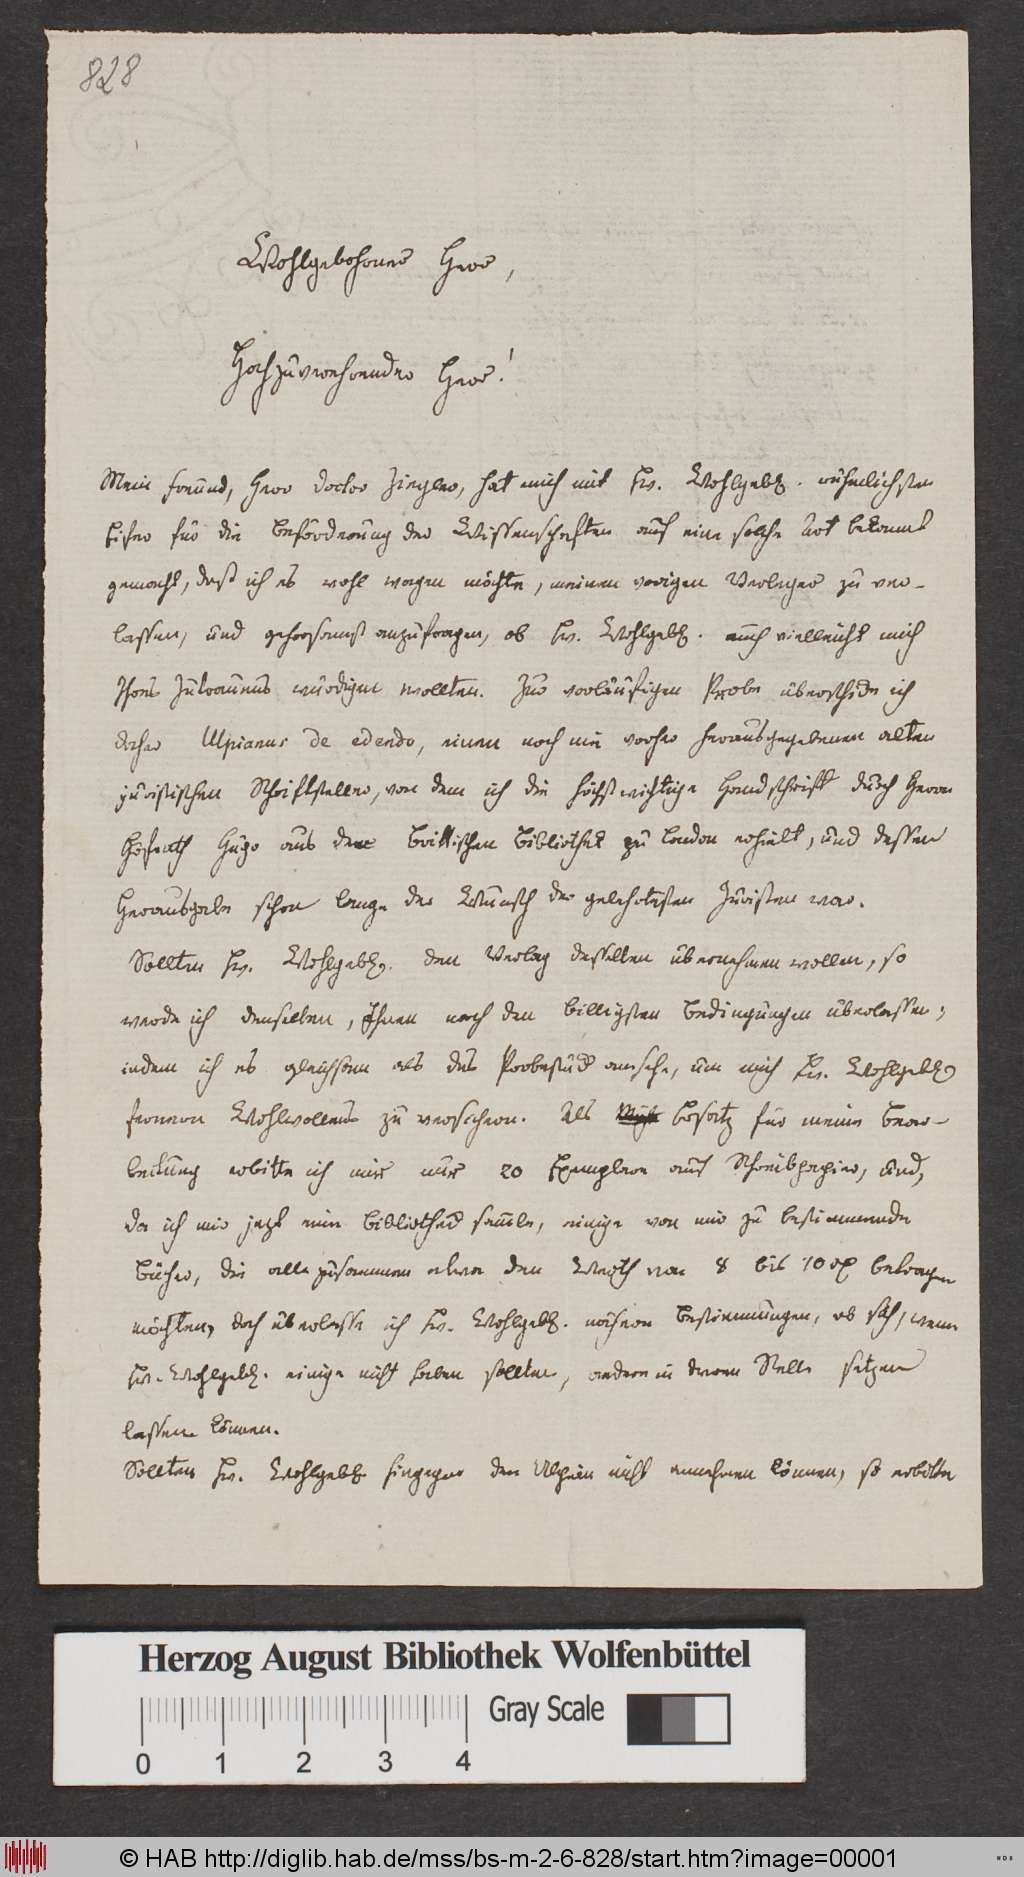 828
Wohlgebohrner Herr,
Hochzuverehrender Herr!
Mein Freund, Herr Doctor Ziegler, hat mich mit Ew. Wohlgeb. rühmlichsten
Eifer für die Beförderung der Wissenschaften auf eine solche Art bekannt
gemacht, daß ich es wohl wagen möchte, meinen vorigen Verleger zu ver-
lassen, und gehorsamst anzufragen, ob Ew. Wohlgeb. auch vielleicht mich
Ihres Zutrauens würdigen wollten. Zur vorläufigen Probe überschicke ich
daher Ulpianus de edendo, einen noch nie vorher herausgegebenen alten
juristischen Schriftsteller, von dem ich die höchst wichtige Handschrift durch Herrn
Hofrath Hugo aus der Brittischen Bibliothek zu London erhielt, und dessen
Herausgabe schon lange der Wunsch der gelehrtesten Juristen war.
Sollten Ew. Wohlgeb. den Verlag desselben übernehmen wollen, so
werde ich denselben, Ihnen nach den billigsten Bedingungen überlassen;
indem ich es gleichsam als das Probestück ansehe, um mich Ew. Wohlgeb.
fernern Wohlwollens zu versichern. Als Ersatz für meine Bear-
beitung erbitte ich mir nur 20 Exemplare auf Schreibpapier, und,
da ich mir jetzt eine Bibliothek sammle, einige von mir zu bestimmende
Bücher, die alle zusammen etwa den Werth von 8 bis 10 betragen
möchten, doch überlasse ich Ew. Wohlgeb. nähere Bestimmungen, ob sich, wenn
Ew. Wohlgeb. einige nicht haben sollten, andere in deren Stelle setzen
lassen können.
Sollten Ew. Wohlgeb. hingegen den Ulpian nicht annehmen können, so erbitte
Herzog August Bibliothek Wolfenbüttel
Gray Scale
0 1 2 3 4
© HAB http://diglib.hab.de/mss/bs-m-2-6-828/start.htm?image=00001